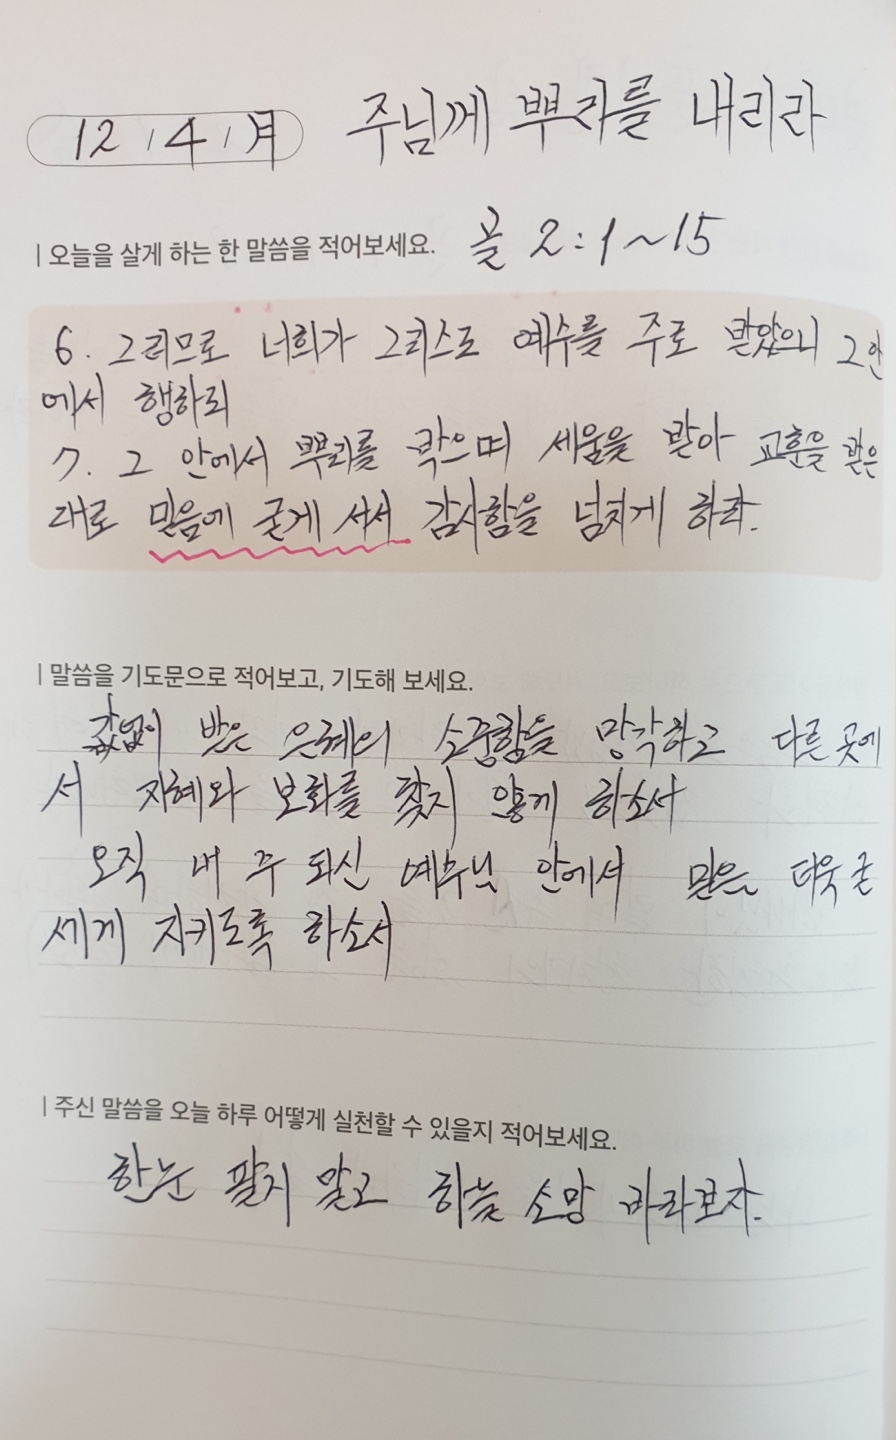 12 / 4 / 月 주님께 뿌리를 내리라
| 오늘을 살게 하는 한 말씀을 적어보세요. 골 2:1~15
6. 그러므로 너희가 그리스도 예수를 주로 받았으니 그 안
에서 행하되
7. 그 안에서 뿌리를 박으며 세움을 받아 교훈을 받은
대로 믿음에 굳게 서서 감사함을 넘치게 하라.
| 말씀을 기도문으로 적어보고, 기도해 보세요.
값없이 받은 은혜의 소중함을 망각하고 다른 곳에
서 지혜와 보화를 찾지 않게 하소서
오직 내 주 되신 예수님 안에서 믿음 더욱 굳
세게 지키도록 하소서
| 주신 말씀을 오늘 하루 어떻게 실천할 수 있을지 적어보세요.
한눈 팔지 말고 하늘 소망 바라보자.